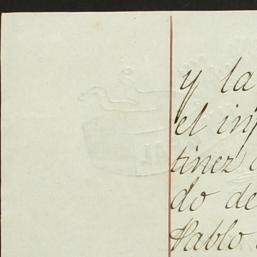 y la
el inf
tinez
do de
Pablo